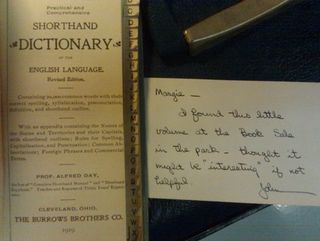 Practical and
Comprehensive
SHORTHAND
DICTIONARY
OF THE
ENGLISH LANGUAGE.
Revised Edition.
Containing words with their
correct spelling, syllabication, pronunciation,
definition, and shorthand outlines.
With an appendix containing the Names of
the States and Territories and their Capitals,
with shorthand outlines; Rules for Spelling,
Capitalization, and Punctuation; Common Ab-
breviations; Foreign Phrases and Commercial
Terms.
BY
PROF. ALFRED DAY,
Author of "Complete Shorthand Manual" and "Shorthand
CLEVELAND, OHIO.
THE BURROWS BROTHERS CO.
1919
Margie —
I found this little
volume at the Book Sale
in the park - thought it
might be "interesting" if not
helpful.
John